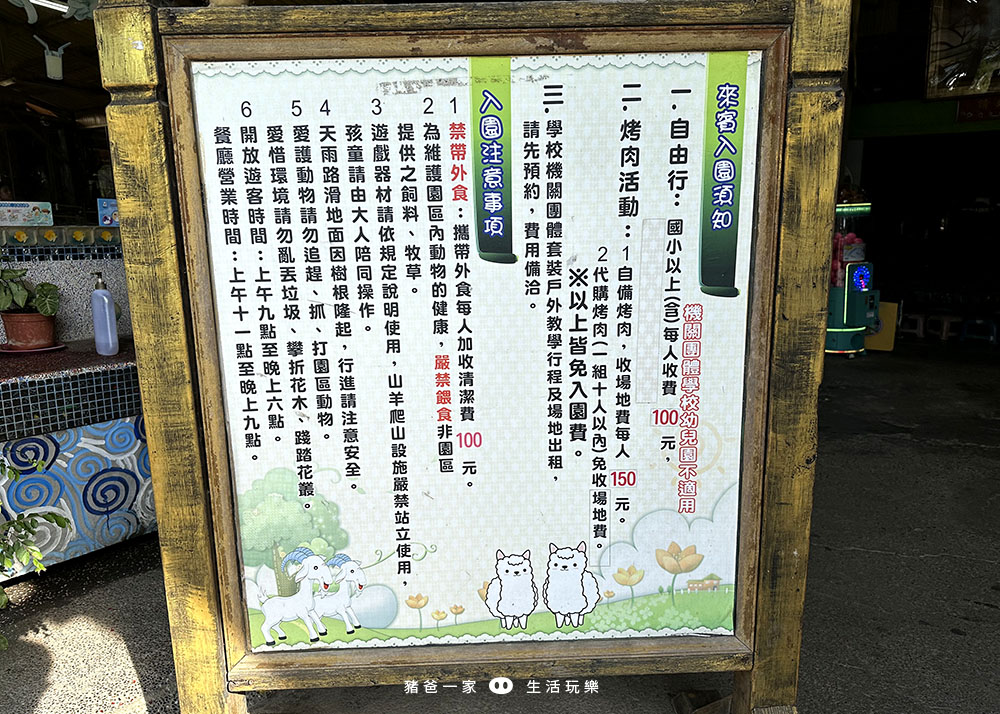 來賓入園須知
機關團體學校幼兒園不適用
一．自由行：國小以上(含)每人收費100元，
二．烤肉活動：1自備烤肉，收場地費每人150元。
2代購烤肉(一組十人以內)免收場地費。
※以上皆免入園費。
三．學校機關團體套裝戶外教學行程及場地出租，
請先預約，費用備洽。
入園注意事項
1禁帶外食：攜帶外食每人加收清潔費100元。
2為維護園區內動物的健康，嚴禁餵食非園區
提供之飼料、牧草。
3遊戲器材請依規定說明使用，山羊爬山設施嚴禁站立使用，
孩童請由大人陪同操作。
4天雨路滑地面因樹根隆起，行進請注意安全。
5愛護動物請勿追趕、抓、打園區動物。
愛惜環境請勿亂丟垃圾、攀折花木、踐踏花叢。
6開放遊客時間：上午九點至晚上六點。
餐廳營業時間：上午十一點至晚上九點。
豬爸一家 生活玩樂